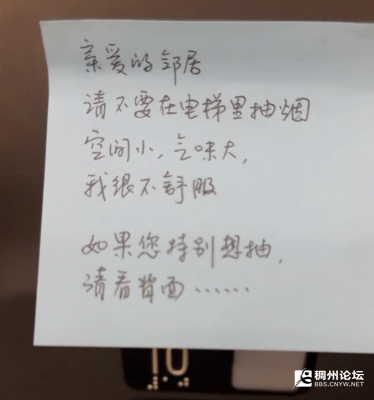 亲爱的邻居
请不要在电梯里抽烟
空间小，气味大，
我很不舒服
如果您特别想抽，
请看背面……
10
稠州论坛
BBS.CNYW.NET